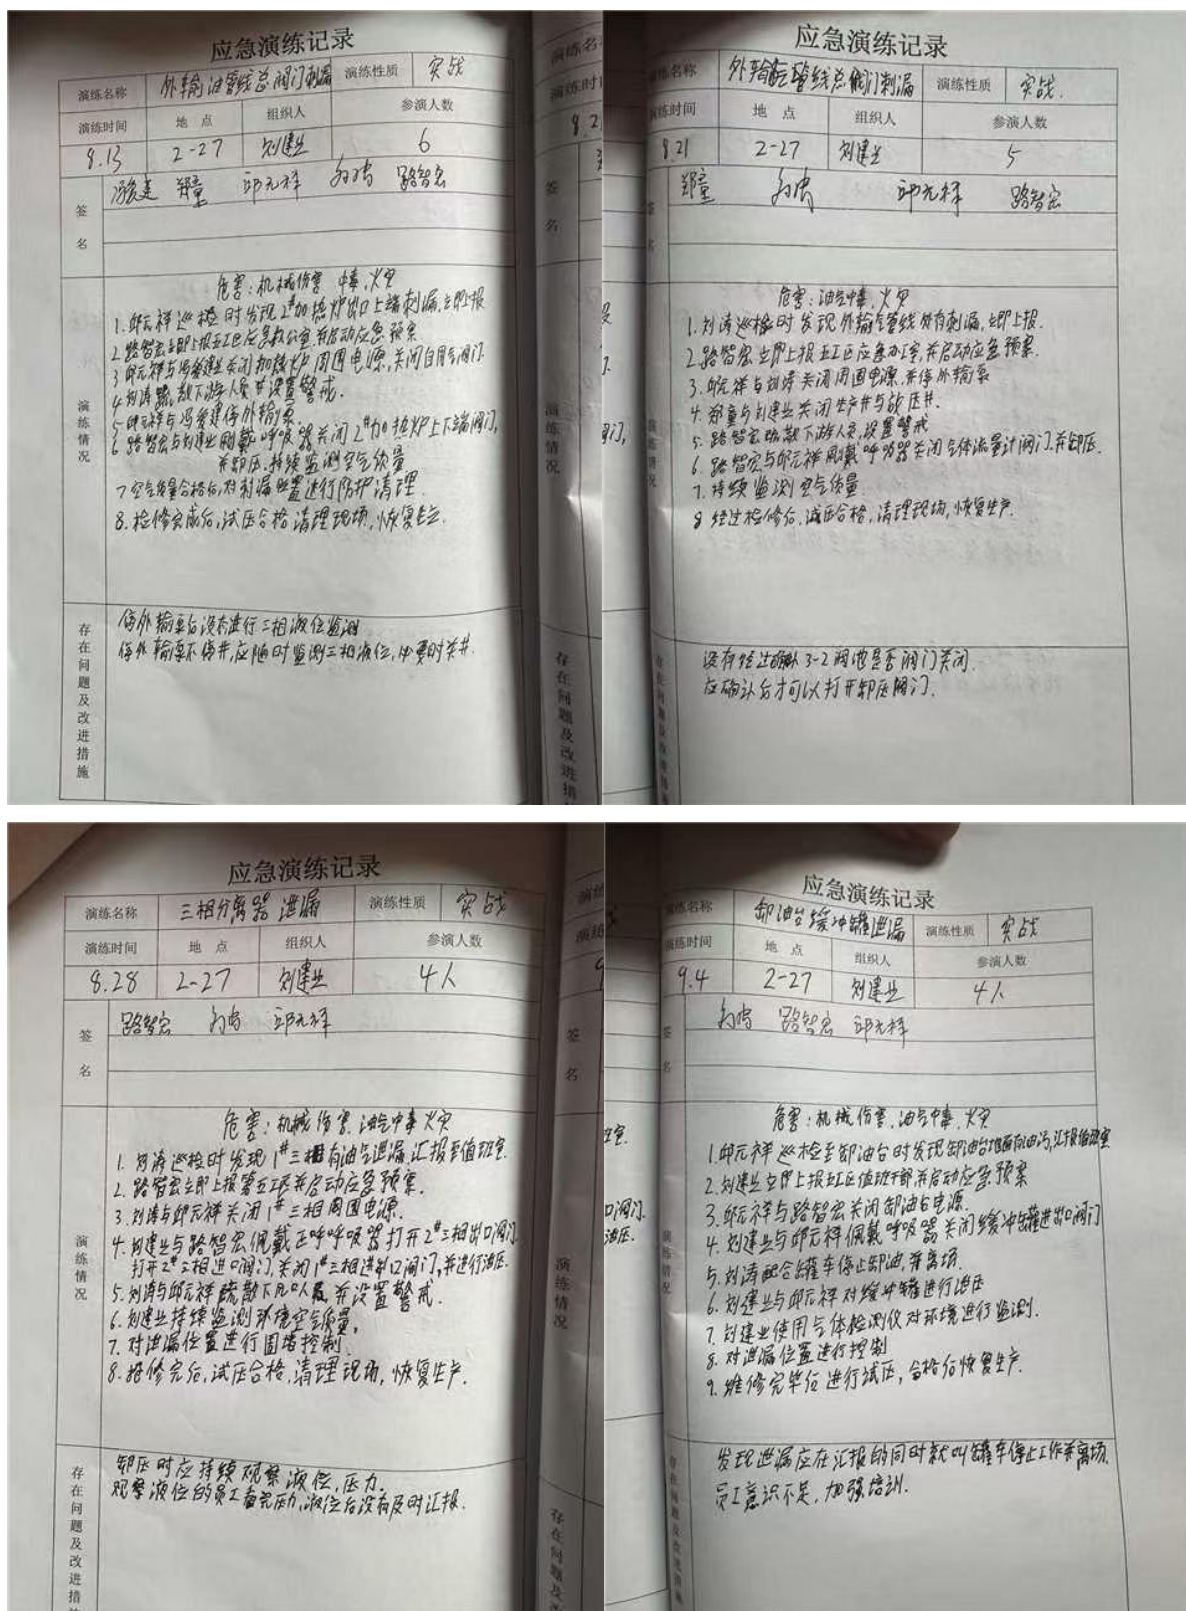 应急演练记录
演练名称 外输油管线总阀门刺漏 演练性质 实战
演练时间 地 点 组织人 参演人数
8.13 2-27 刘建业 6
签名 冯爱建 郑童 邱元祥 刘涛 路智宏
演练情况
危害:机械伤害 中毒,火灾
1.邱元祥巡检时发现2#加热炉出口上端刺漏,立即上报
2.路智宏立即上报五工区应急办公室并启动应急预案
3.邱元祥与冯爱建关闭加热炉周围电源,关闭自用气阀门.
4.刘涛疏散下游人员并设置警戒.
5.邱元祥与冯爱建停外输泵
6.路智宏与刘建业佩戴呼吸器关闭2#加热炉上下端阀门,
并卸压.持续监测空气质量
7.空气质量合格后,对刺漏位置进行防护清理.
8.检修完成后,试压合格清理现场,恢复生产.
存在问题及改进措施
停外输泵后没有进行三相液位监测
停外输泵不停井,应随时监测三相液位,必要时关井.
应急演练记录
演练名称 外输气管线总阀门刺漏 演练性质 实战.
演练时间 地 点 组织人 参演人数
8.21 2-27 刘建业 5
签名 郑童 刘涛 邱元祥 路智宏
演练情况
危害:油气中毒,火灾
1.刘涛巡检时发现外输气管线外有刺漏,立即上报.
2.路智宏立即上报五工区应急办公室,并启动应急预案.
3.邱元祥与刘涛关闭周围电源,并停外输泵
4.郑童与刘建业关闭生产井与放压井.
5.路智宏疏散下游人员,设置警戒
6.路智宏与邱元祥佩戴呼吸器关闭气体流量计阀门.并卸压.
7.持续监测空气质量.
8.经过检修后,试压合格,清理现场,恢复生产.
没有经过确认3-2阀池是否阀门关闭.
应确认后才可以打开卸压阀门.
应急演练记录
演练名称 三相分离器泄漏 演练性质 实战
演练时间 地 点 组织人 参演人数
8.28 2-27 刘建业 4人
签名 路智宏 刘涛 邱元祥
演练情况
危害:机械伤害,油气中毒 火灾
1.刘涛巡检时发现1#三相有油气泄漏,汇报至值班室.
2.路智宏立即上报第五工区并启动应急预案.
3.刘涛与邱元祥关闭1#三相周围电源.
4.刘建业与路智宏佩戴正呼呼吸器打开2#三相出口阀门.
打开2#三相进口阀门,关闭1#三相进出口阀门,并进行泄压.
5.刘涛与邱元祥疏散下风口人员并设置警戒.
6.刘建业持续监测环境空气质量.
7.对泄漏位置进行围堵控制.
8.抢修完后,试压合格,清理现场,恢复生产.
存在问题及改进措施
卸压时应持续观察液位,压力.
观察液位的员工看完压力,液位后没有及时汇报.
应急演练记录
演练名称 卸油台缓冲罐泄漏 演练性质 实战
演练时间 地 点 组织人 参演人数
9.4 2-27 刘建业 4人
签名 刘涛 路智宏 邱元祥
演练情况
危害:机械伤害,油气中毒,火灾
1.邱元祥巡检至卸油台时发现卸油台地面有油污,汇报值班室
2.刘建业立即上报五工区值班干部,并启动应急预案
3.邱元祥与路智宏关闭卸油台电源.
4.刘建业与邱元祥佩戴呼吸器关闭缓冲罐进出口阀门
5.刘涛配合罐车停止卸油,并离场.
6.刘建业与邱元祥对缓冲罐进行泄压
7.刘建业使用气体检测仪对环境进行监测.
8.对泄漏位置进行控制
9.维修完毕后进行试压,合格后恢复生产.
发现泄漏应在汇报的同时就叫罐车停止工作并离场.
员工意识不足,加强培训.